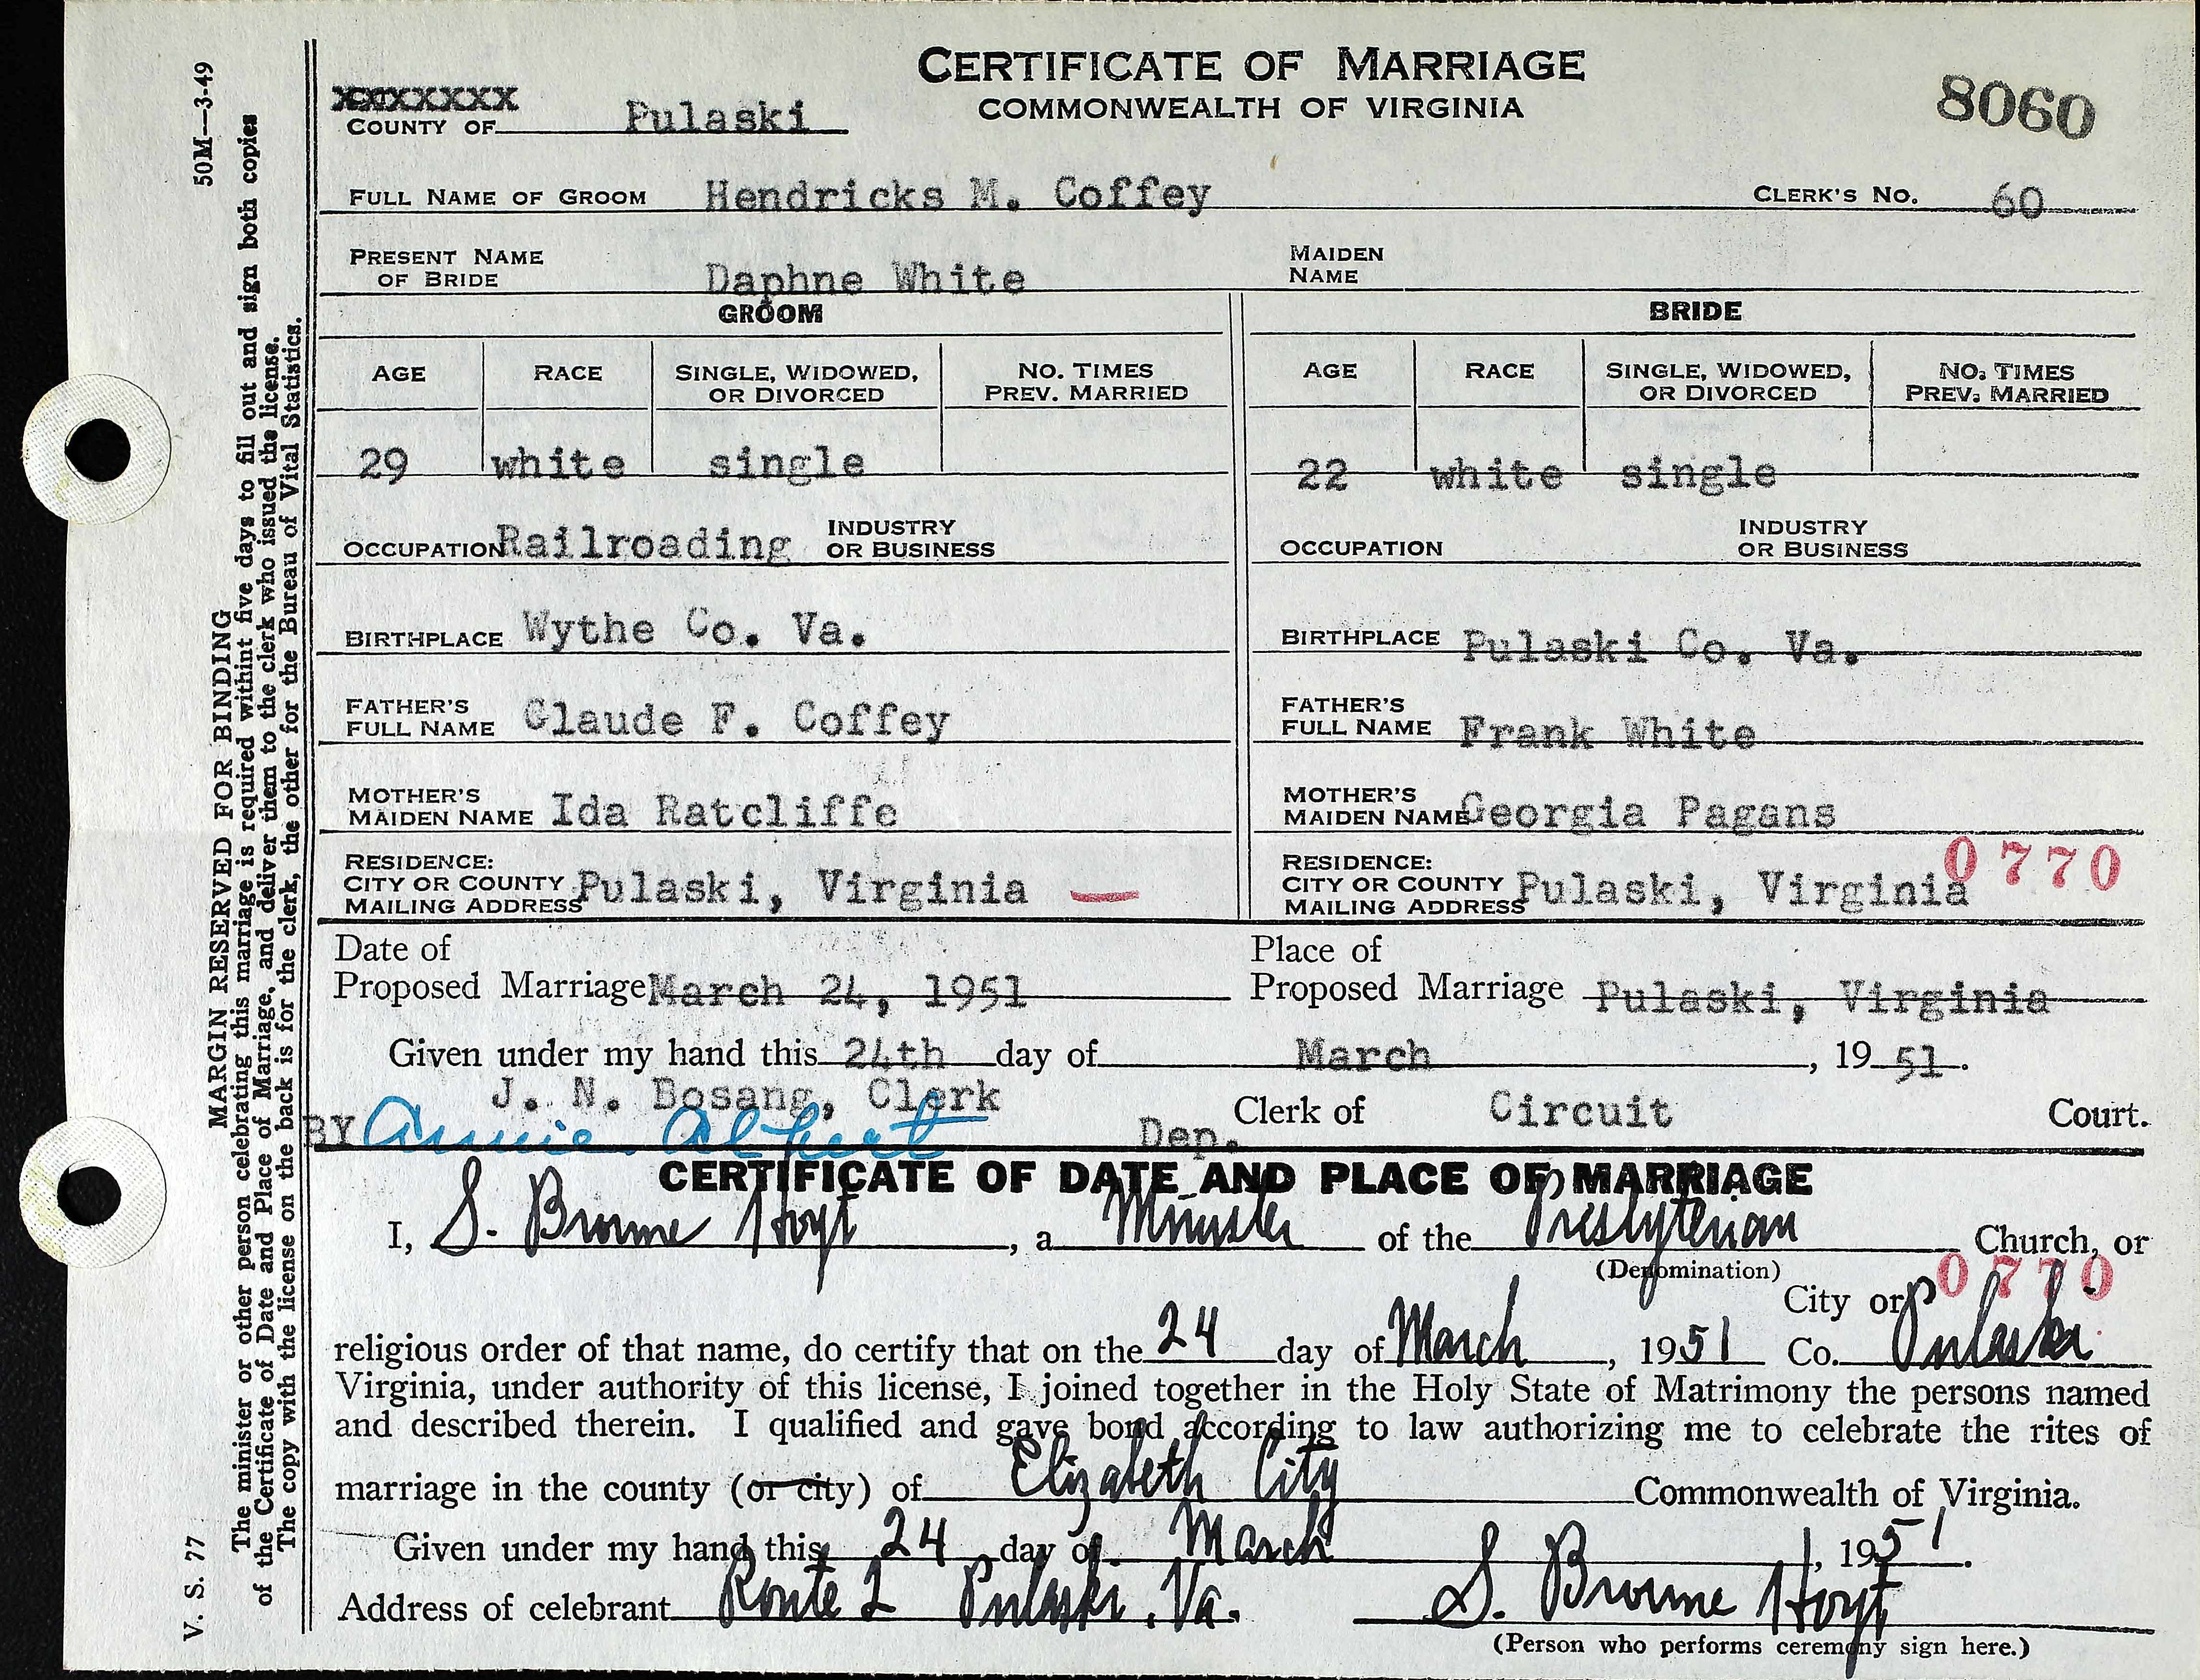 CERTIFICATE OF MARRIAGE
COMMONWEALTH OF VIRGINIA
8060
COUNTY OF Pulaski
FULL NAME OF GROOM Hendricks M. Coffey CLERK'S No. 60
PRESENT NAME OF BRIDE Daphne White MAIDEN NAME
GROOM BRIDE
AGE RACE SINGLE, WIDOWED, OR DIVORCED NO. TIMES PREV. MARRIED AGE RACE SINGLE, WIDOWED, OR DIVORCED NO. TIMES PREV. MARRIED
29 white single 22 white single
OCCUPATION Railroading INDUSTRY OR BUSINESS OCCUPATION INDUSTRY OR BUSINESS
BIRTHPLACE Wythe Co. Va. BIRTHPLACE Pulaski Co. Va.
FATHER'S FULL NAME Claude F. Coffey FATHER'S FULL NAME Frank White
MOTHER'S MAIDEN NAME Ida Ratcliffe MOTHER'S MAIDEN NAME Georgia Pagans
0770
RESIDENCE: CITY OR COUNTY MAILING ADDRESS Pulaski, Virginia RESIDENCE: CITY OR COUNTY MAILING ADDRESS Pulaski, Virginia
Date of Proposed Marriage March 24, 1951 Place of Proposed Marriage Pulaski, Virginia
Given under my hand this 24th day of March, 1951.
J. N. Bosang, Clerk
BY Annie Albert Dep. Clerk of Circuit Court.
CERTIFICATE OF DATE AND PLACE OF MARRIAGE
I, S. Browne Hoyt, a Minister of the Presbyterian Church, or
(Denomination)
0770
City or
religious order of that name, do certify that on the 24 day of March, 1951 Co. Pulaski
Virginia, under authority of this license, I joined together in the Holy State of Matrimony the persons named
and described therein. I qualified and gave bond according to law authorizing me to celebrate the rites of
marriage in the county (or city) of Elizabeth City Commonwealth of Virginia.
Given under my hand this 24 day of March, 1951.
Address of celebrant Route 2 Pulaski, Va. S. Browne Hoyt
(Person who performs ceremony sign here.)
V. S. 77 MARGIN RESERVED FOR BINDING 50M—3-49
The minister or other person celebrating this marriage is required withint five days to fill out and sign both copies
of the Certificate of Date and Place of Marriage, and deliver them to the clerk who issued the license.
The copy with the license on the back is for the clerk, the other for the Bureau of Vital Statistics.